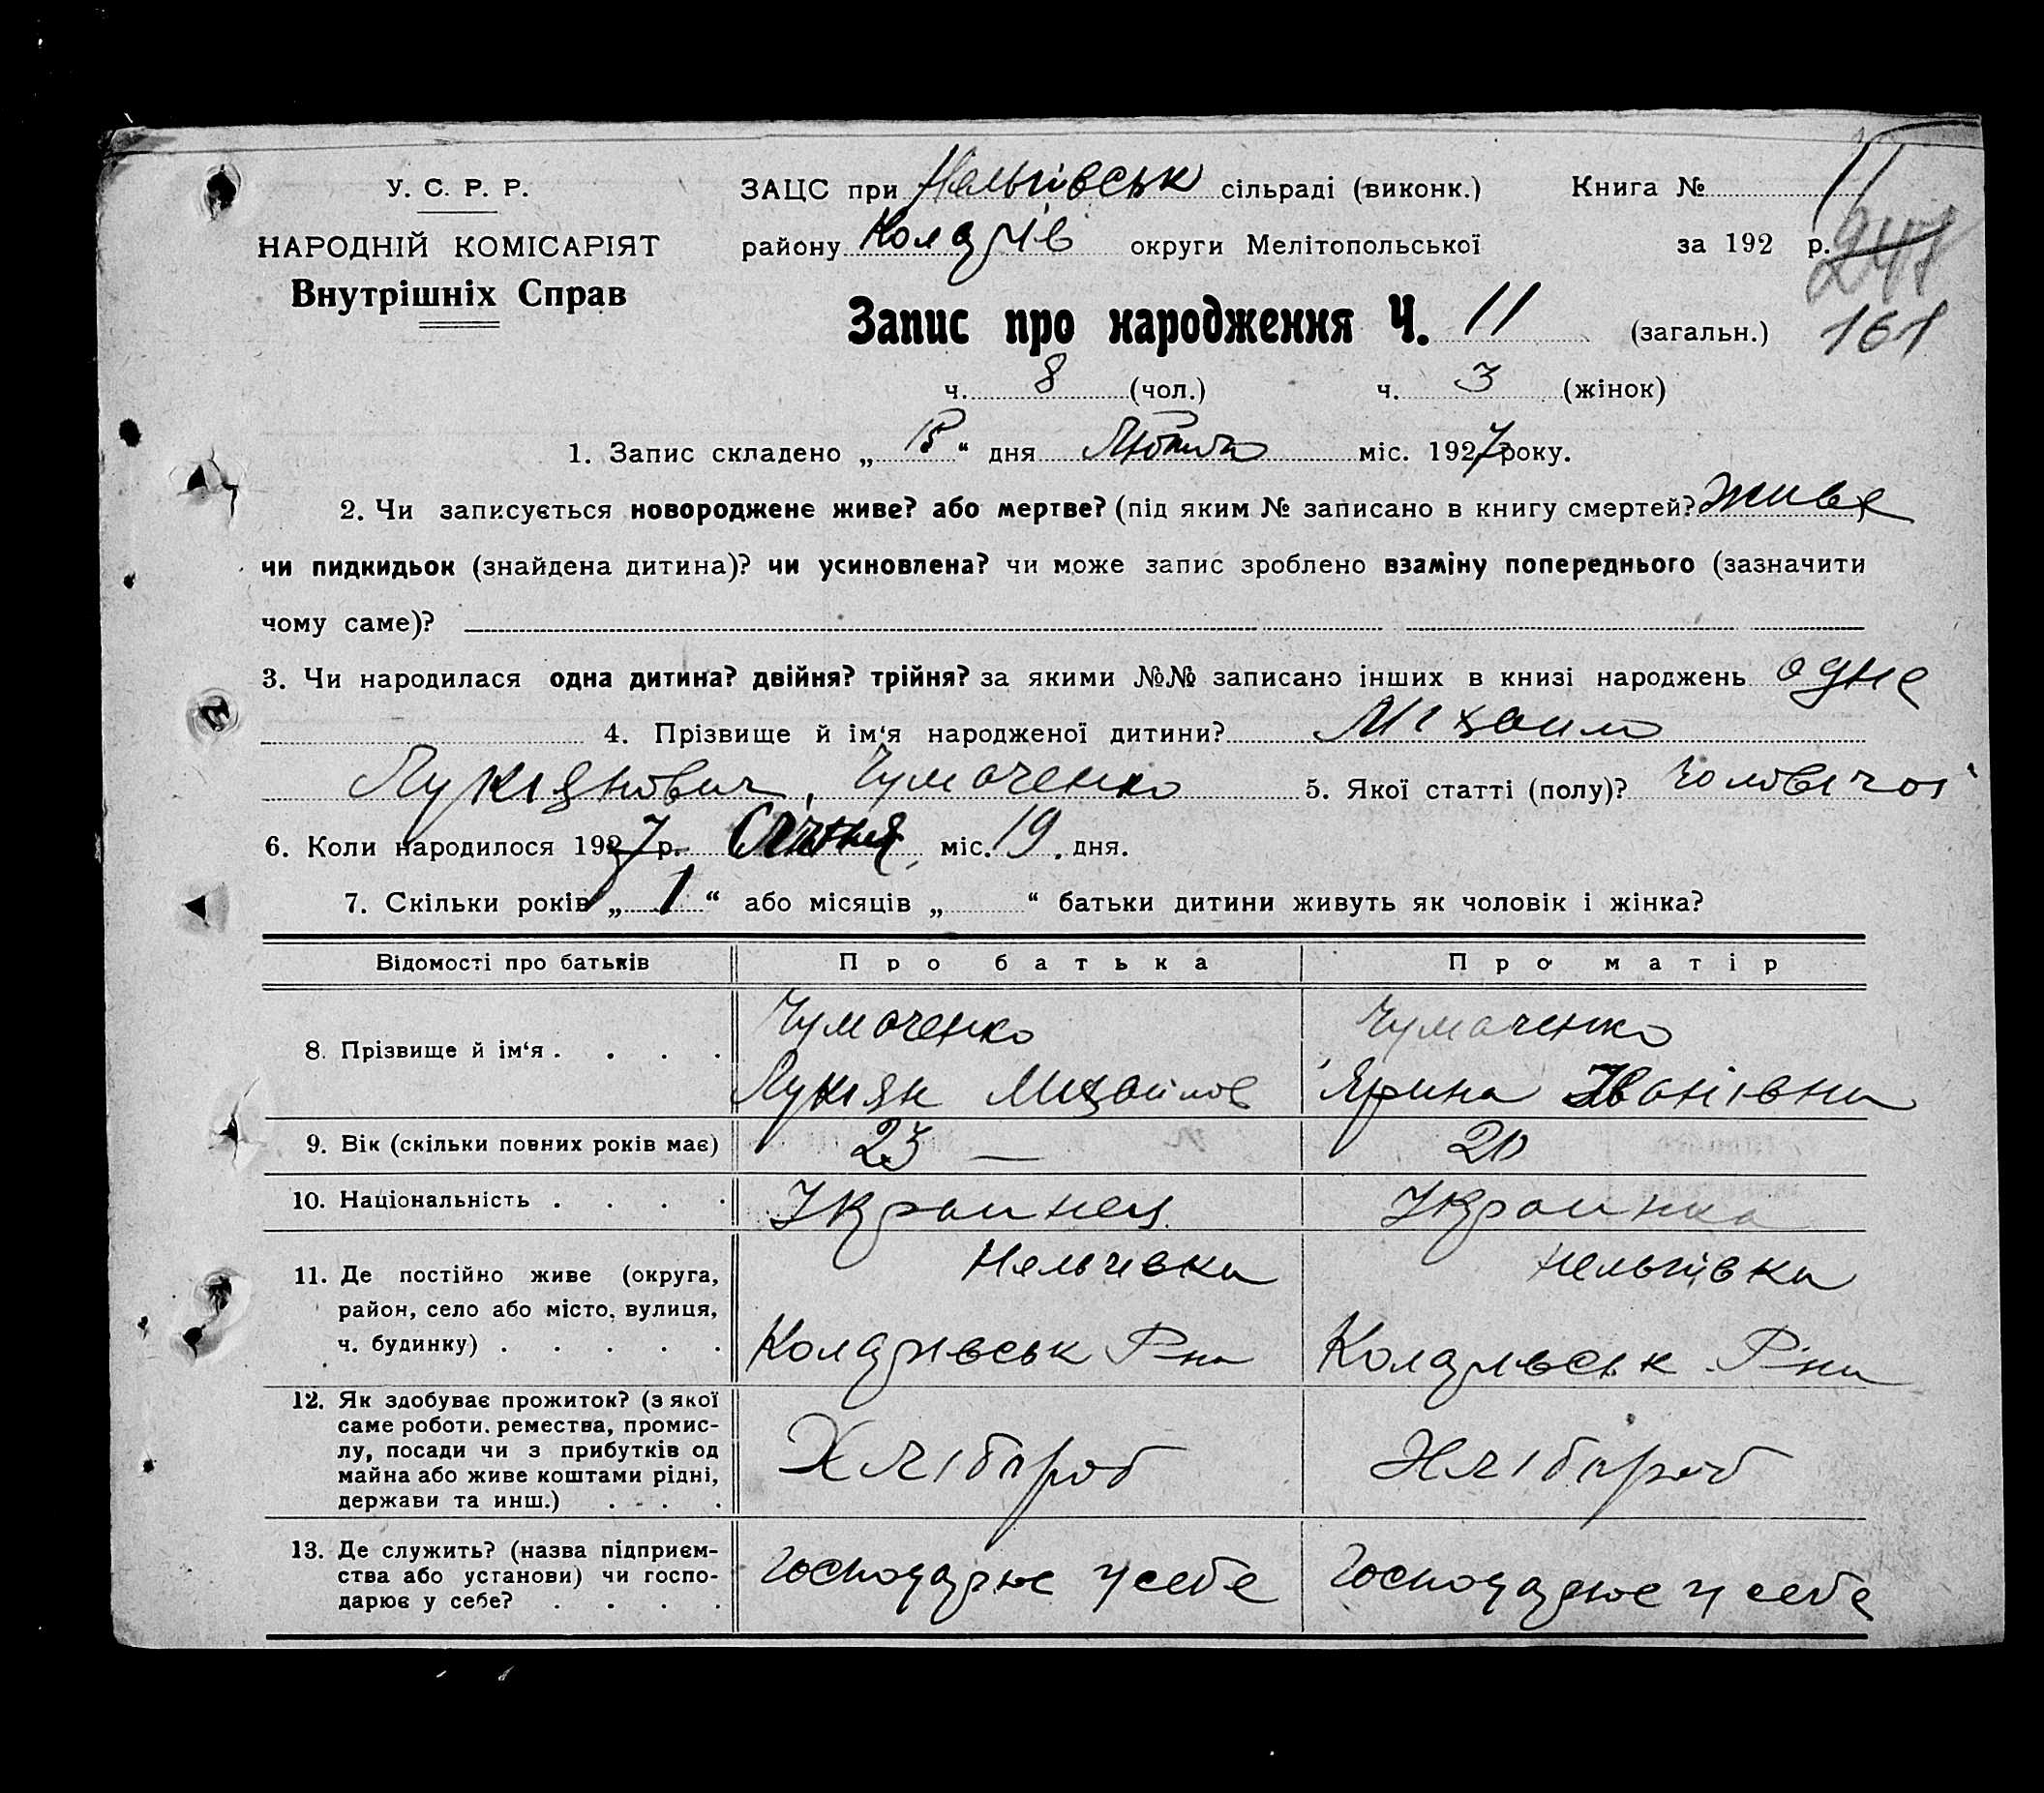 У. С. Р. Р.
НАРОДНІЙ КОМІСАРІЯТ
Внутрішніх Справ
ЗАЦС при Нельгівськ сільраді (виконк.) Книга № 11
району Коларів округи Мелітопольської за 192 р.
247
161
Запис про народження Ч. 11 (загальн.)
ч. 8 (чол.) ч. 3 (жінок)
1. Запис складено „ “ дня Лютого міс. 1927 року.
2. Чи записується новороджене живе? або мертве? (під яким № записано в книгу смертей? живе
чи пидкидьок (знайдена дитина)? чи усиновлена? чи може запис зроблено взаміну попереднього (зазначити
чому саме)?
3. Чи народилася одна дитина? двійня? трійня? за якими №№ записано інших в книзі народжень одне
4. Прізвище й ім‘я народженої дитини? Міхаило
Лукіянович, Чумаченко 5. Якої статті (полу)? чоловічої
6. Коли народилося 1927 р. Січня міс. 19 дня.
7. Скільки років „ 1 “ або місяців „ “ батьки дитини живуть як чоловік і жінка?
Відомості про батьків Про батька Про матір
8. Прізвище й ім‘я . . . . Чумаченко Чумаченко
Лукіян Михайлов Ярина Іванівна
9. Вік (скільки повних років має) 23 — 20
10. Національність . . . . Украинец Украинка
11. Де постійно живе (округа, район, село або місто, вулиця, ч. будинку) . . . . . Нельгівка Нельгівка
Коларівськ Р-на Коларівськ Р-на
12. Як здобуває прожиток? (з якої саме роботи. ремества, промислу, посади чи з прибутків од майна або живе коштами рідні, держави та инш.) . . . Хлібороб Хлібороб
13. Де служить? (назва підприємства або установи) чи господарює у себе? . . . . господарює у себе господарює у себе